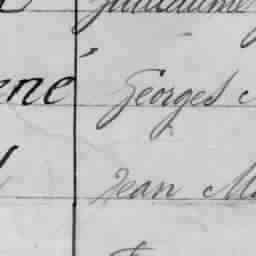 Guillaume
ené Georges
Jean M